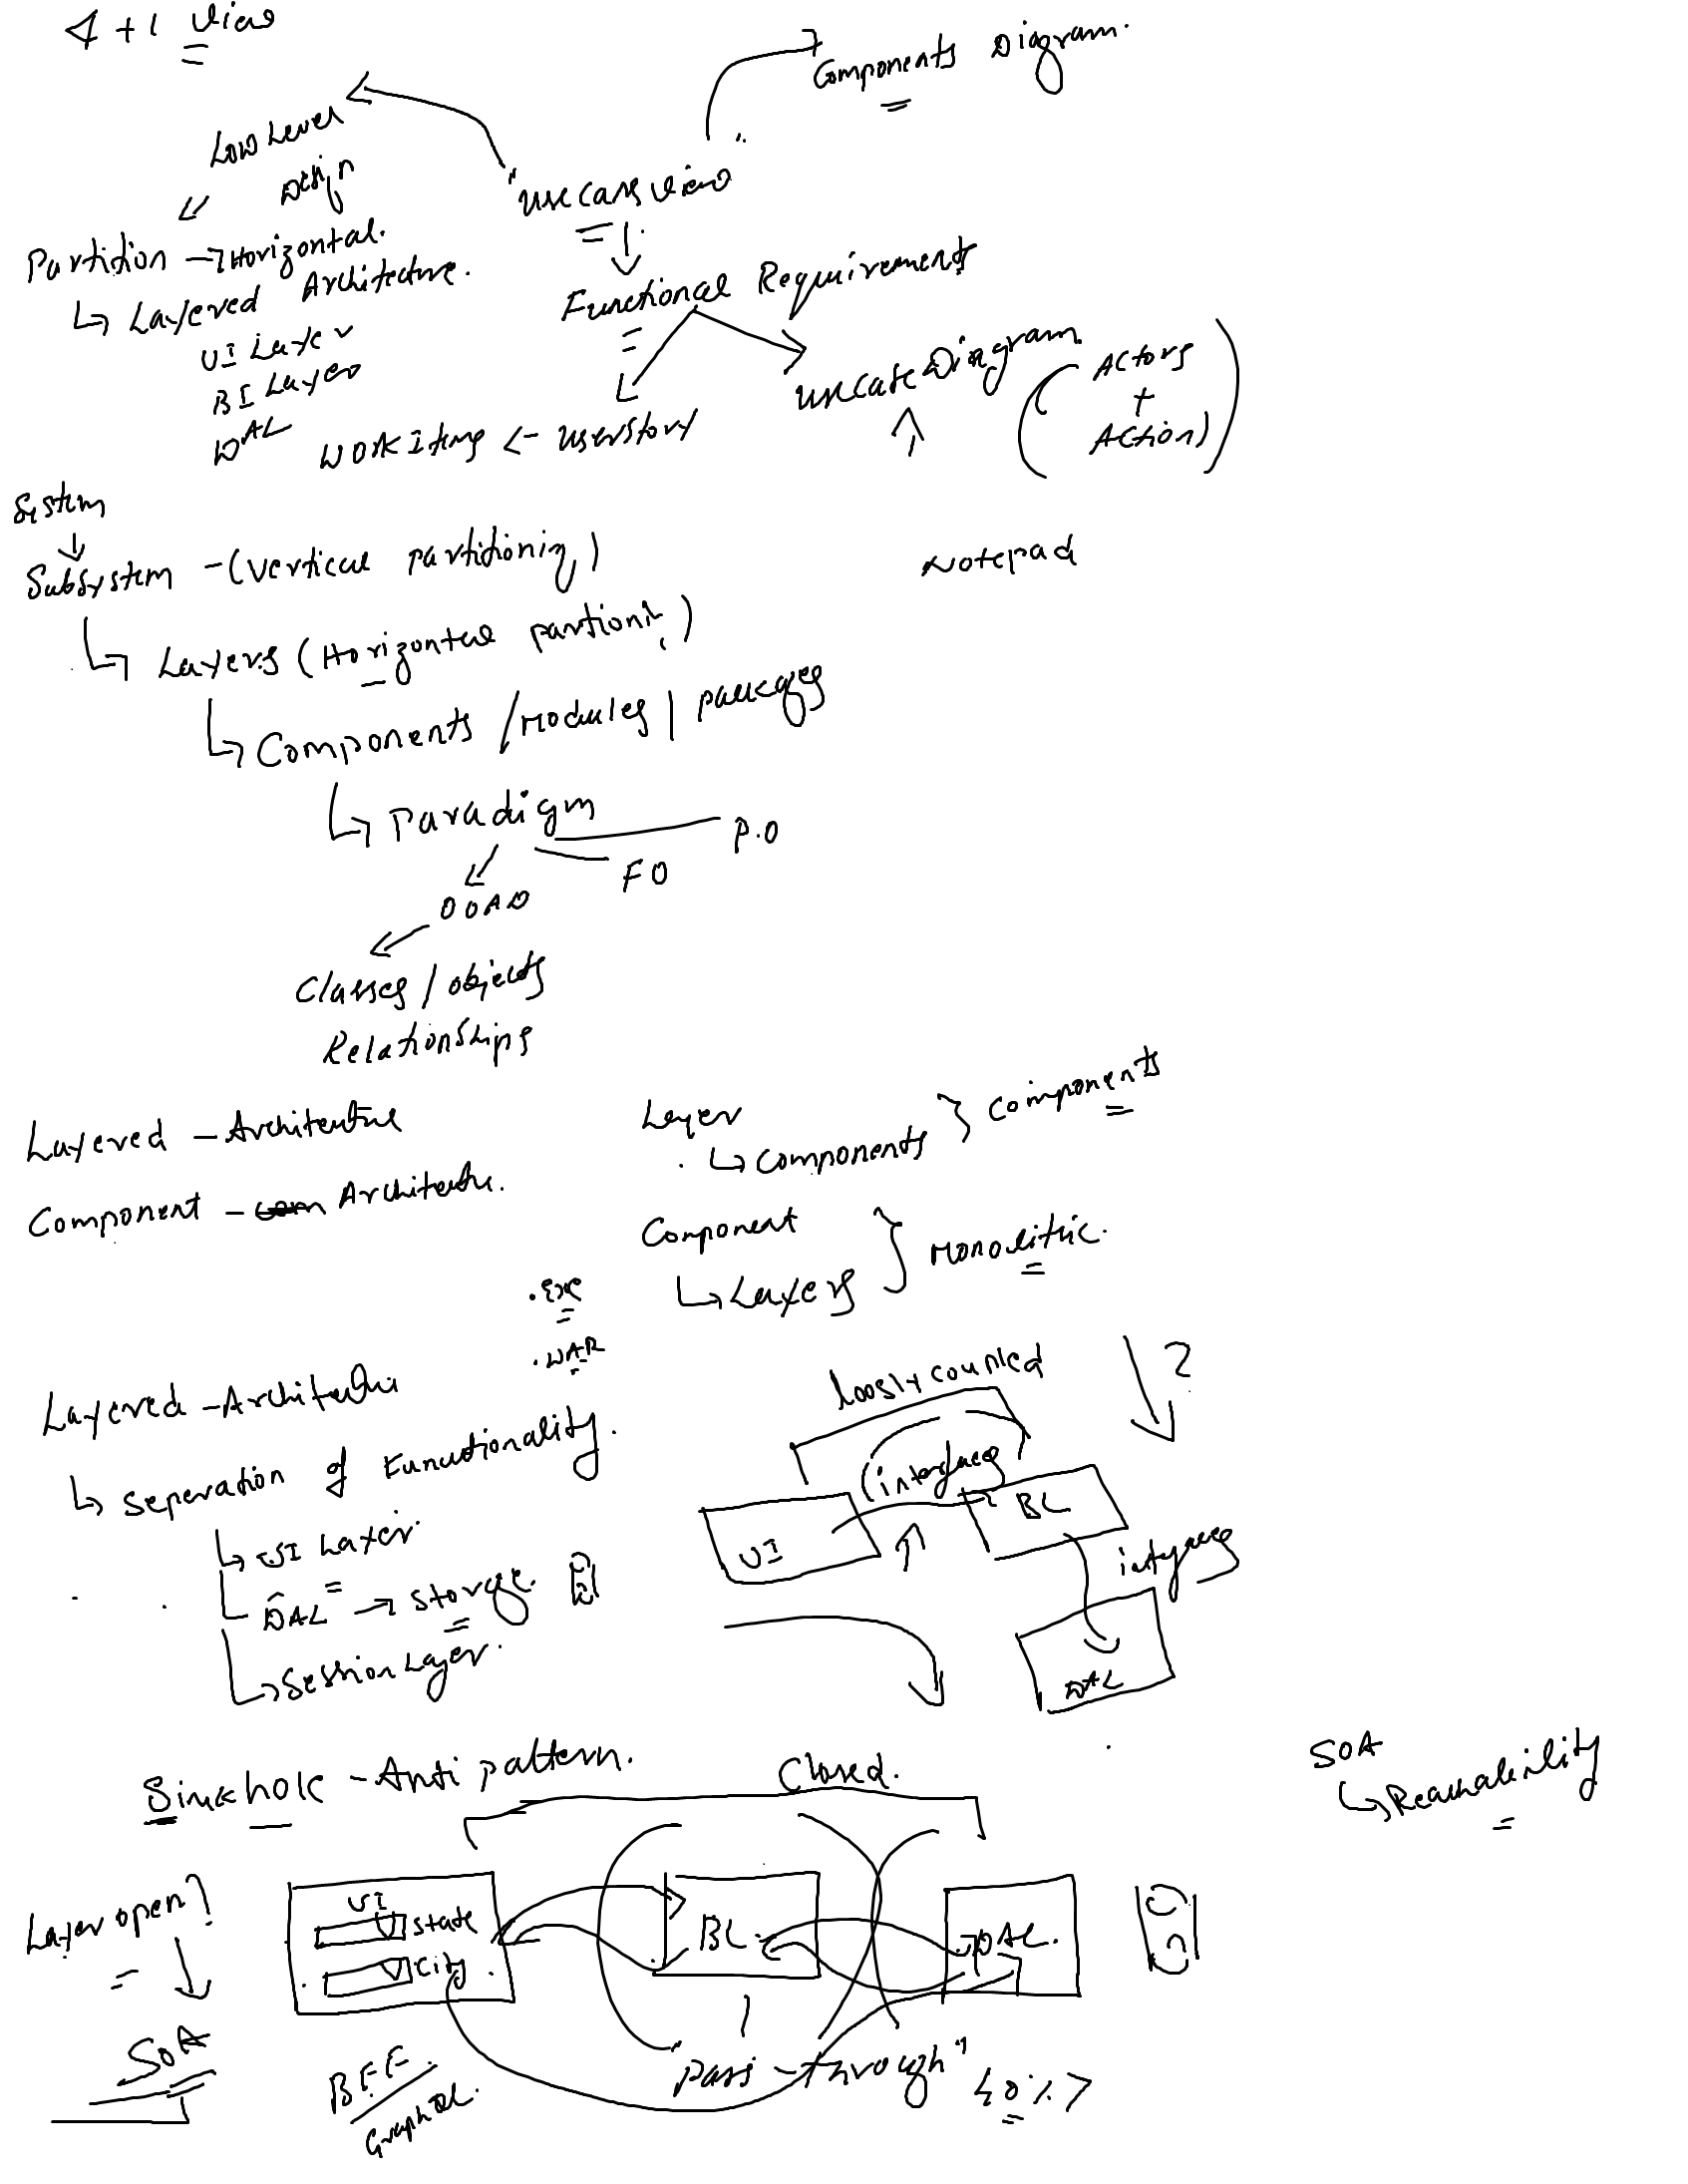 4 + 1 View
Components Diagram.
Low Level
Design
"Use Case View"
Partition → Horizontal.
↳ Layered Architecture.
UI Layer
BI Layer
DAL
Functional Requirements
Use Case Diagram
(Actors
+
Action)
Work Items ← User Story
System
Subsystem - (Vertical partitioning)
Notepad
↳ Layers (Horizontal partioning)
↳ Components / Modules | packages
↳ Paradigm
P.O
FO
OOAD
Classes / objects
Relationships
Layered - Architecture
Layer
↳ Components } Components
Component - Architecture.
Component
↳ Layers } Monolithic.
.Exe
.WAR
Layered - Architecture
loosly coupled
?
↳ Seperation of Functionality.
(interfaces)
UI
BL
↳ UI Layer.
interfaces
DAL → Storage.
DAL
↳ Session Layer.
Sinkhole - Anti pattern.
Closed.
SOA
↳ Reachability
Layer open?
UI
State
City
BL
DAL.
SOA
BFF
GraphQL.
"Pass - through"